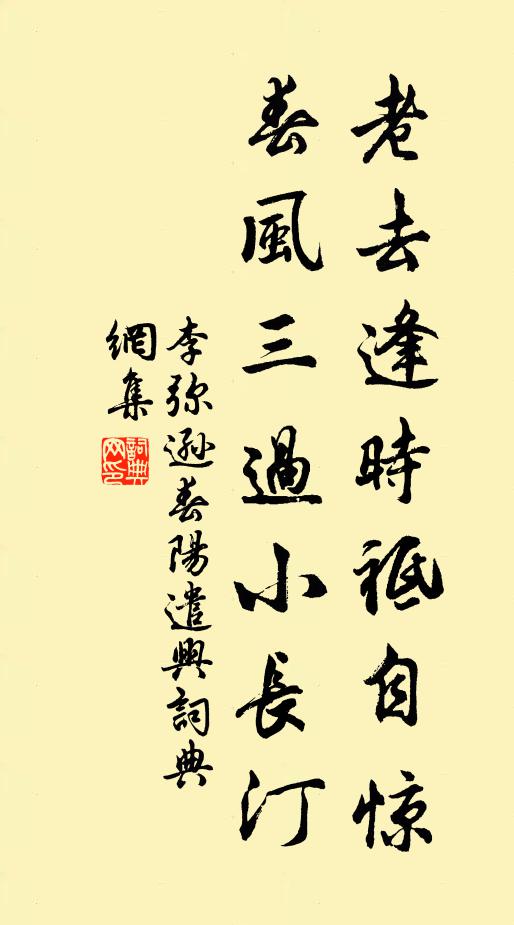 老去逢時祗自惊
春風三過小長汀
李弥遜春陽遣興詞典
網集
詞典網印